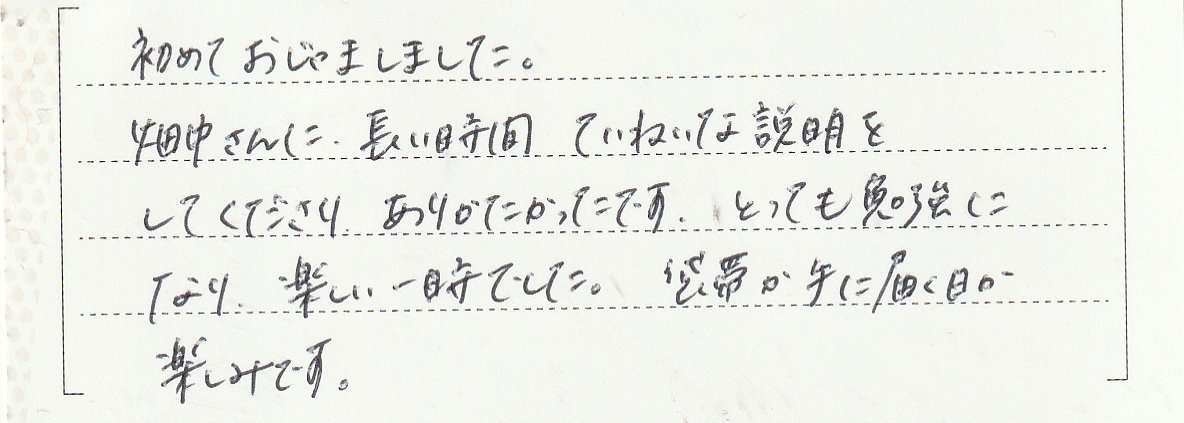 初めておじゃましました。
畑中さんに、長い時間 ていねいな説明を
してくださり、ありがたかったです。とっても勉強に
なり、楽しい一時でした。袋帯が手に届く日が
楽しみです。